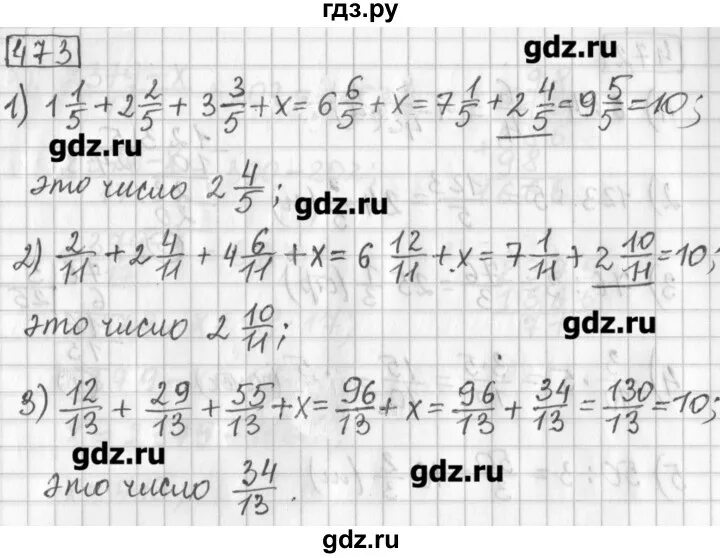 гдз.ру
473
gdz.ru
1) 1 1/5 + 2 2/5 + 3 3/5 + x = 6 6/5 + x = 7 1/5 + 2 4/5 = 9 5/5 = 10;
gdz.ru
это число 2 4/5;
gdz.ru
2) 2/11 + 2 4/11 + 4 6/11 + x = 6 12/11 + x = 7 1/11 + 2 10/11 = 10;
это число 2 10/11;
gdz.ru
3) 12/13 + 29/13 + 55/13 + x = 96/13 + x = 96/13 + 34/13 = 130/13 = 10;
gdz.ru
gdz.ru
это число 34/13.
gdz.ru